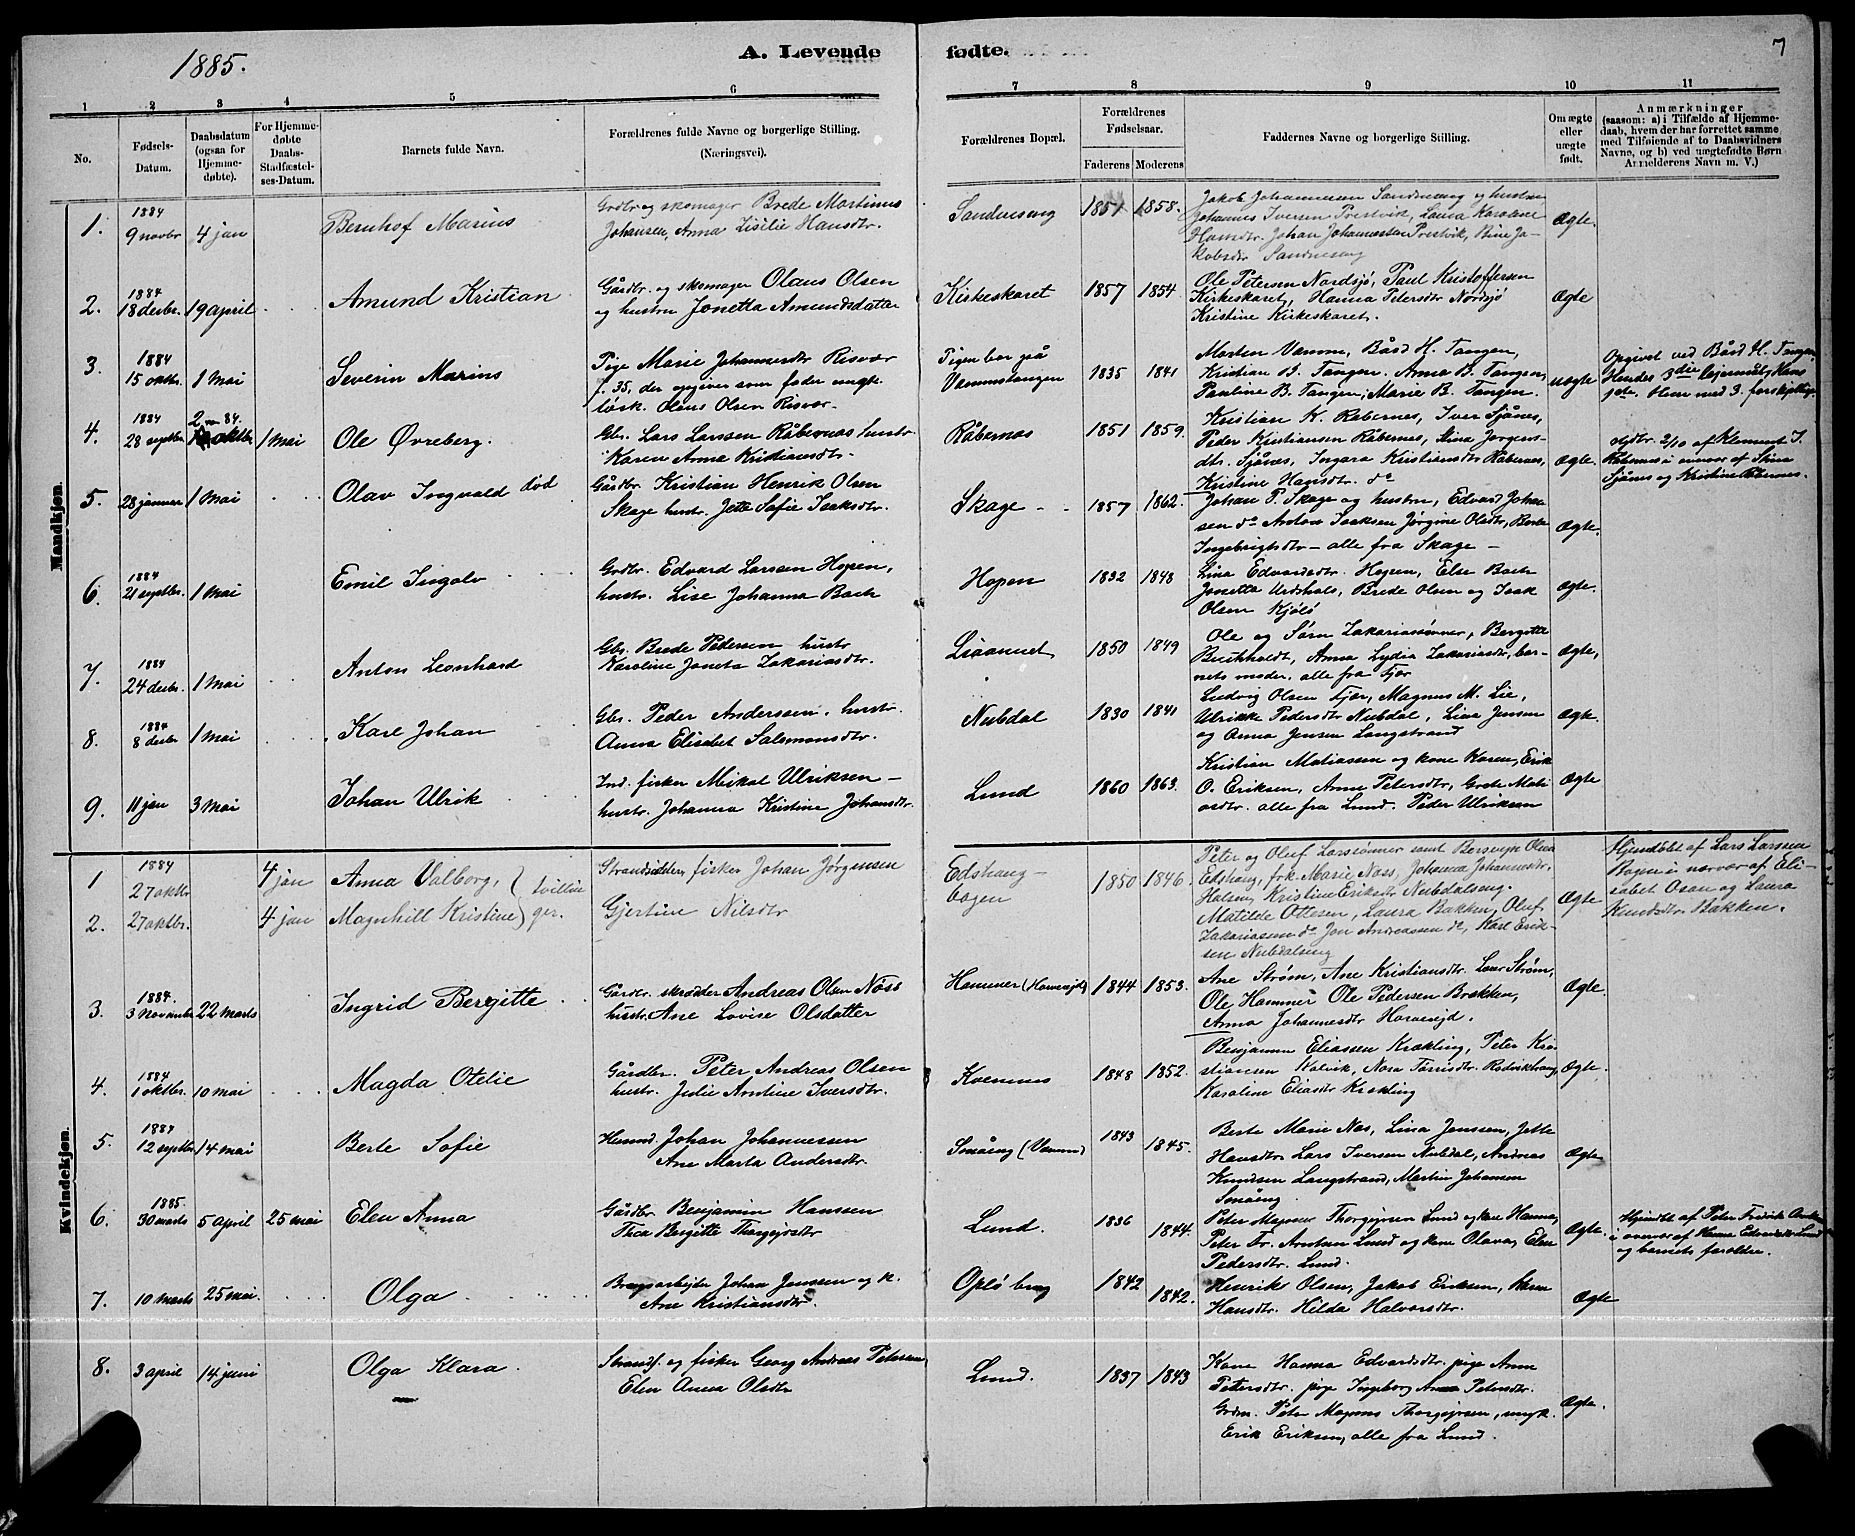 1885.
A. Levende fødte.
7
1 2 3 4 5 6 7 8 9 10 11
No.
Fødsels-Datum.
Daabsdatum (ogsaa for Hjemme-døbte).
For Hjemme-døbte Daabs-Stadfæstel-ses-Datum.
Barnets fulde Navn.
Forældrenes fulde Navne og borgerlige Stilling.
(Næringsvei).
Forældrenes Bopæl.
Forældrenes Fødselsaar.
Faderens Moderens
Faddernes Navne og borgerlige Stilling.
Om ægte eller uægte født.
Anmærkninger
(saasom: a) i Tilfælde af Hjemme-
daab, hvem der har forrettet samme
med Tilføiende af to Daabsvidners
Navne, og b) ved uægtefødte Børn
Anmelderens Navn m. V.)
Mandkjøn.
1. 1884 9 novbr 4 jan Bernhof Marius
Grdbr og skomager Brede Martinus
Johansen, Anna Lisilie Hansdtr.
Sandneseng 1851 1858.
Jakob Johannesen Sandneseng og hustru
Johannes Iversen Prestvik, Laura Karoline
Hansdtr. Johan Johannesen Prestvik, Bine Ja-
kobsdtr Sandneseng
Ægte.
2. 1884 18 decbr. 19 april Amund Kristian
Gårdbr. og skomager Olaus Olsen
og hustru Jonetta Amundsdatter
Kirkeskaret 1857 1854
Ole Petersen Nordsjø, Paul Kristoffersen
Kirkeskaret, Hanna Petersdtr Nordsjø
Kristine Kirkeskaret.
Ægte
3. 1884 15 oktbr. 1 Mai Severin Marius
Pige Marie Johannesdtr Risvær
f. 35, der opgiver som fader ungk.
løsk. Olaus Olsen Risvær.
Pigen bor på
Vammstangen 1835 1841
Morten Vamme, Bård H. Tangen,
Kristian B. Tangen. Anna B. Tangen,
Pauline B. Tangen, Marie B. Tangen.
uægte
Opgivet ved Bård H. Tangen
Hendes 3die leiermål, Hans
1ste. Hun med 3 forskjellige.
4. 1884 28 septbr. 2 84. oktbr. 1 Mai Ole Øvreberg.
Gbr. Lars Larssen Råbernas hustr
Karen Anna Kristiansdtr.
Råbernas 1851 1859.
Kristian K. Råbernes, Iver Sjånes,
Peder Kristiansen Råbernes, Stina Jørgens-
dtr. Sjånes, Ingara Kristiansdtr Råbernes,
Kristine Hansdtr. do
Ægte.
Hjdbt. 2/10 af Klement I.
Råbernes i nærvær af Stina
Sjånes og Kristine Råbernes.
5. 28 januar 1 Mai Olav Ingvald død
Gårdbr. Kristian Henrik Olsen
Skage hustr. Jette Sofie Isaksdtr.
Skage 1857 1862.
Johan P. Skage og hustru, Edvard Johan
sen do Anton Isaksen Jørgine Olsdtr, Berta
Ingebrigtsdtr – alle fra Skage –
Ægte.
6. 1884 21 septbr. 1 Mai Emil Ingolv
Grdbr. Edvard Larssen Hopen,
hustr. Lise Johanna Bach
Hopen 1832 1848
Lina Edvardsdtr. Hopen, Else Bach
Jonetta Urdshals, Brede Olsen og Isak
Olsen Kjølsö
Ægte.
7. 1884 24 decbr. 1 Mai Anton Leonhard
Gbr. Brede Pedersen hustr
Karoline Joneta Zakariasdtr.
Liaaunet 1850 1849
Ole og Sørn Zakariassønner, Bergitte
Buchholdt, Anna Lydia Zakariasdtr, bar-
nets moder, alle fra Fjær
Ægte,
8. 1884 8 decbr 1 Mai Karl Johan
Gbr. Peder Anderssen, hustr.
Anna Elisabet Salomonsdtr.
Nubdal 1830 1841
Ludvig Olsen Fjær, Magnus M. Lie,
Ulrikke Pedersdtr Nubdal, Lina Jensen
og Anna Jensen Langstrand
Ægte.
9. 11 jan 3 Mai Johan Ulrik
Ind. fisker Mikal Ulriksen –
hustr. Johanna Kristine Johansdtr
Lund 1860 1863.
Kristian Matiassen og kone Karen, Erik
O. Eriksen, Anne Petersdtr, Grete Mati
asdtr. alle fra Lund. Peder Ulriksen
Ægte
Kvindekjøn.
1 1884 27 oktbr 4 jan Anna Valborg,
2. 27 oktbr. 4 jan Magnhill Kristine
tvillin
ger.
Strandsidder, fisker Johan Jørgensen
Gjertine Nilsdtr
Edshaug-
bogen 1850 1846.
Peter og Oluf Larssønner samt Bersvejn Olsa
Edshaug, frk. Marie Næss, Johanna Johannesdtr.
Halsen, Kristine Eriksdtr Nubdalseng.
Matilde Ottesen, Laura Bakken, Oluf
Zakariasen do Jon Andreassen do, Karl Erik-
sen Nubdalseng
Ægte
Hjemdøbt af Lars Larssen
Bogen i nærvær af Eli-
sabet Osan og Laura
Knudsdtr. Bakken.
3. 1884. 3 November 22 marts Ingrid Bergitte
Gårdbr. skrædder Andreas Olsen Nöss
hustr. Ane Lovise Olsdatter
Hammer 1844 1853.
Ane Strøm, Ane Kristiansdtr. Strøm,
Ole Hammer Ole Pedersen Brekken,
Anna Johannesdtr
Ægte.
4. 1884 1 oktbr. 10 mai Magda Otelie
Gårdbr. Peter Andreas Olsen
hustr. Julie Antine Iversdtr.
Kvennes 1848 1852.
Benjamin Eliassen Krækling, Peter Kri-
stiansen Kalvik, Nora Tørrisdtr.
Karoline Eliasdtr Krækling
Ægte.
5. 1884 12 septbr 14 mai Berte Sofie
Husmd. Johan Johannessen
Ane Marta Andersdtr.
Småeng (Vamm) 1843 1845.
Berte Marie Næs, Lina Jenssen, Jette
Hansdtr. Lars Iversen Nubdal, Andreas
Knudsen Langstrand, Martin Johansen
Småeng.
Ægte
6. 1885. 30 marts 5 april 25 mai Elen Anna
Gårdbr. Benjamin Hanssen
Thea Bergitte Thorgejrsdtr
Lund. 1836 1844.
Peter Magnus Thorgejrsen Lund og kone Hanna,
Peter Fr. Arntsen Lund og kone Olava, Elen
Pedersdtr. Lund.
Ægte.
Hjmdbt af Peter Fredrik
i nærvær af Hanna Edvardsdtr Lund
og barnets forældre.
7. 10 marts 25 mai. Olga
Brugsarbejder Johan Janssen og k.
Ane Kristiansdtr.
Opløbrug 1842 1842.
Henrik Olsen, Jakob Eriksen,
Hansdtr. Hilda Halvorsdtr.
Ægte
8. 3 april 14 juni Olga Klara.
Strands. og fisker Georg Andreas Petersen
Elen Anna Olsdtr
Lund. 1837 1843
Kone Hanna Edvardsdtr. pige Anne
Petersdtr. pige Ingeborg Anna Petersdtr.
Grdm. Peter Magnus Thorgejrsen, ungk.
Erik Eriksen, alle fra Lund.
Ægte.